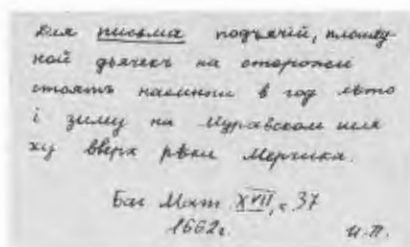 Для письма подъячій, площад
ной дьячекъ на сторожѣ
стоятъ наемнии в год лѣто
і зиму на Муравском шля
ху вверх рѣки Мерчика.
Баг Мат. XVII, с 37
1662 г. И.П.